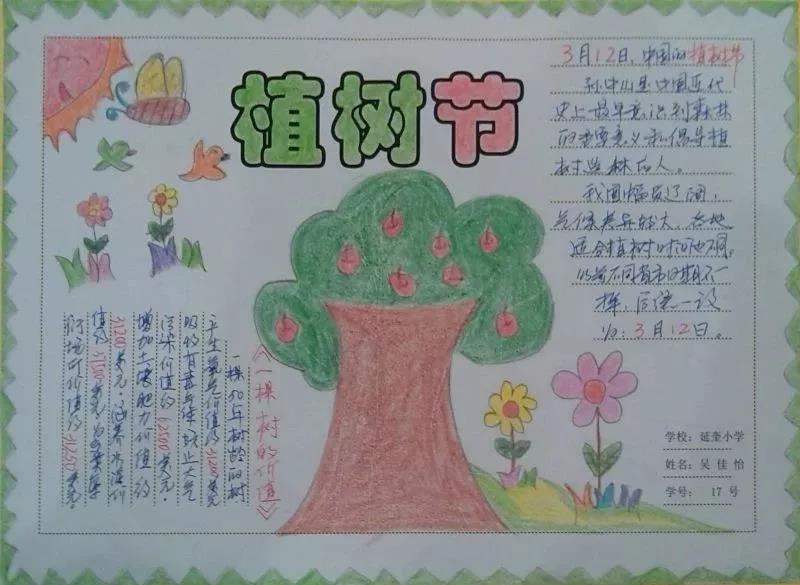 植树节
3月12日,中国的植树节
孙中山是中国近代
史上最早意识到森林
的重要意义和倡导植
树造林的人。
我国幅员辽阔,
气候差异较大,各地
适合植树时间也不同。
以前不同省市日期不一
样,后统一设
为:3月12日。
《一棵树的价值》
一棵50年树龄的树
产生氧气价值约31200美元
吸收有毒气体防止大气
污染价值约
增加土壤肥力价值约
31200美元,涵养水源价
值约
学校:延奎小学
姓名:吴佳怡
学号: 17号